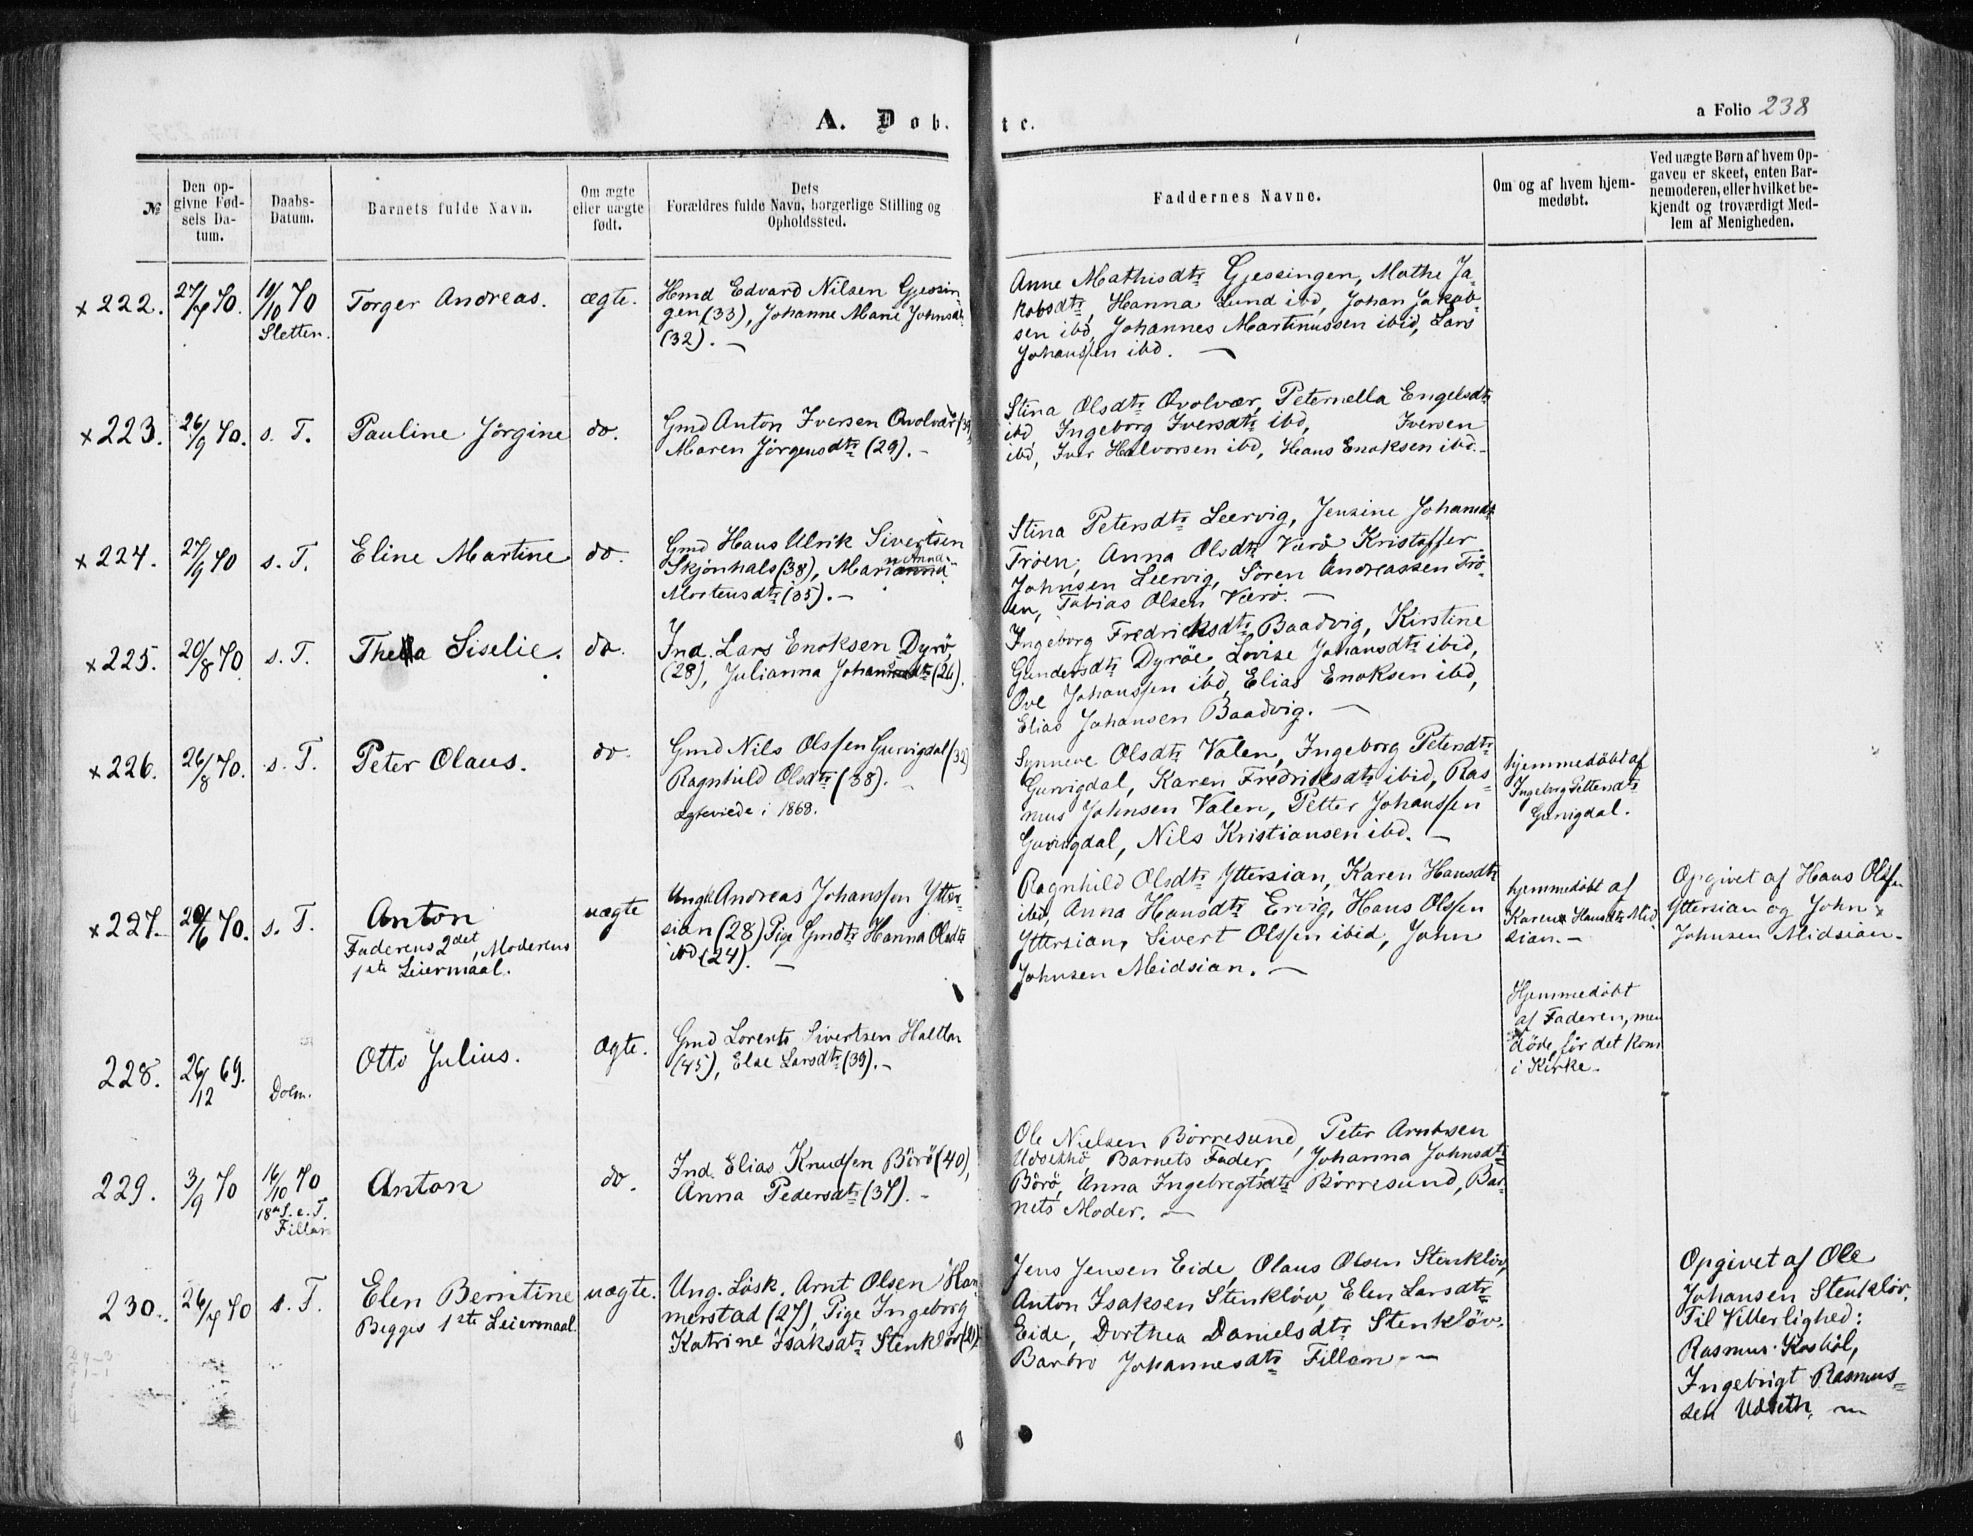 A. Døbte.
a Folio 238
№
Den opgivne Fødsels Datum.
Daabs-Datum.
Barnets fulde Navn.
Om ægte eller uægte født.
Dets Forældres fulde Navn, borgerlige Stilling og Opholdssted.
Faddernes Navne.
Om og af hvem hjemmedøbt.
Ved uægte Børn af hvem Opgaven er skeet, enten Barnemoderen, eller hvilket bekjendt og troværdigt Medlem af Menigheden.
x 222. 27/7 70. 10/10 70 Torger Andreas. ægte.
Sletten.
Hmd Edvard Nilsen Gjessin-
gen (33), Johanne Marie Johnsdtr
(32). —
Anne Mathisdtr Gjessingen, Mathe Ja-
kobsdtr, Hanna Lund ibd, Johan Jakob-
sen ibd, Johannes Martinussen ibid, Lars
Johanssen ibd. —
x 223. 26/9 70. s. T. Pauline Jørgine do.
Gmd Anton Iversen Qvolvær (39)
Maren Jørgensdtr (29). —
Stina Olsdtr Qvolvær, Peternella Engelsdtr
ibd, Ingeborg Iversdtr ibd, Iversen
ibd, Iver Halvorsen ibd, Hans Enoksen ibd. —
x 224. 27/9 70 s. T. Eline Martine do.
Gmd Hans Ulrik Sivertsen
Skjønhals (38), Marianna
Mortensdtr (35). —
Stina Petersdtr Leervig, Jensine Johansdtr
Frøen, Anna Olsdtr Værø Kristoffer
Johnsen Leervig, Søren Andreassen Frø-
en, Tobias Olsen Værø. —
x 225. 20/8 70. s. T. Thea Siselie. do.
Ind. Lars Enoksen Dyrø,
(28), Julianna Johannsdtr (26).
Ingeborg Fredriksdtr Baadvig, Kirstine
Gundersdtr Dyrøe, Lovise Johansdtr ibid,
Ove Johanssen ibd, Elias Enoksen ibd,
Elias Johansen Baadvig. —
x 226. 26/8 70. s. T. Peter Olaus. do.
Gmd Nils Olssen Gurvigdal (32)
Ragnhild Olsdtr (38). —
Ægteviede i 1868.
Synneve Olsdtr Valen, Ingeborg Petersdtr
Gurvigdal, Karen Fredriksdtr ibid, Ras-
mus Johnsen Valen, Petter Johanssen
Gurvigdal, Nils Kristiansen ibd. —
hjemmedøbt af
Ingeborg Pettersdtr
Gurvigdal.
x 227. 20/6 70. s. T. Anton uægte
Faderens 2det, Moderens
1ste Leiermaal.
Ungk Andreas Johanssen Ytter-
sian (28) Pige Gmdtr Hanna Olsdtr
ibd (24). —
Ragnhild Olsdtr Yttersian, Karen Hansdtr
ibd, Anna Hansdtr Ervig, Hans Olssen
Yttersian, Sivert Olssen ibid, John
Johnsen Midsian. —
hjemmedøbt af
Karen Hansdtr Mid
sian. —
Opgivet af Hans Olssen
Yttersian og John
Johnsen Midsian.
228. 26/12 69. Dolm. Otto Julius. Ægte.
Gmd Lorents Sivertsen Haltlan
(45), Else Larsdtr (39). —
Hjemmedøbt
af Faderen, men
døde, før det kom
i Kirke.
229. 3/9 70 16/10 70 Anton do.
18de S. e. T.
Fillan
Ind. Elias Knudsen Børø (40),
Anna Pedersdtr (37). —
Ole Nielsen Børresund, Peter Arntsen
Barnets Fader, Johanna Johnsdtr
Børø, Anna Ingebregtsdtr Børresund, Bar-
nets Moder. —
230. 26/7 70 s. T. Elen Berntine uægte.
Begges 1ste Leiermaal.
Ung. Løsk. Arnt Olsen Ham-
merstad (27), Pige Ingeborg
Katrine Isaksdtr Stenkløv
Jens Jensen Eide, Olaus Olsen Stenkløv,
Anton Isaksen Stenkløv, Elen Larsdtr
Eide, Dorthea Danielsdtr Stenkløv
Barbro Johannesdtr Fillan. —
Opgivet af Ole
Johansen Stenkløv.
Til Vitterlighed:
Rasmus Kosbøl,
Ingebrigt Rasmus-
sen Udseth.